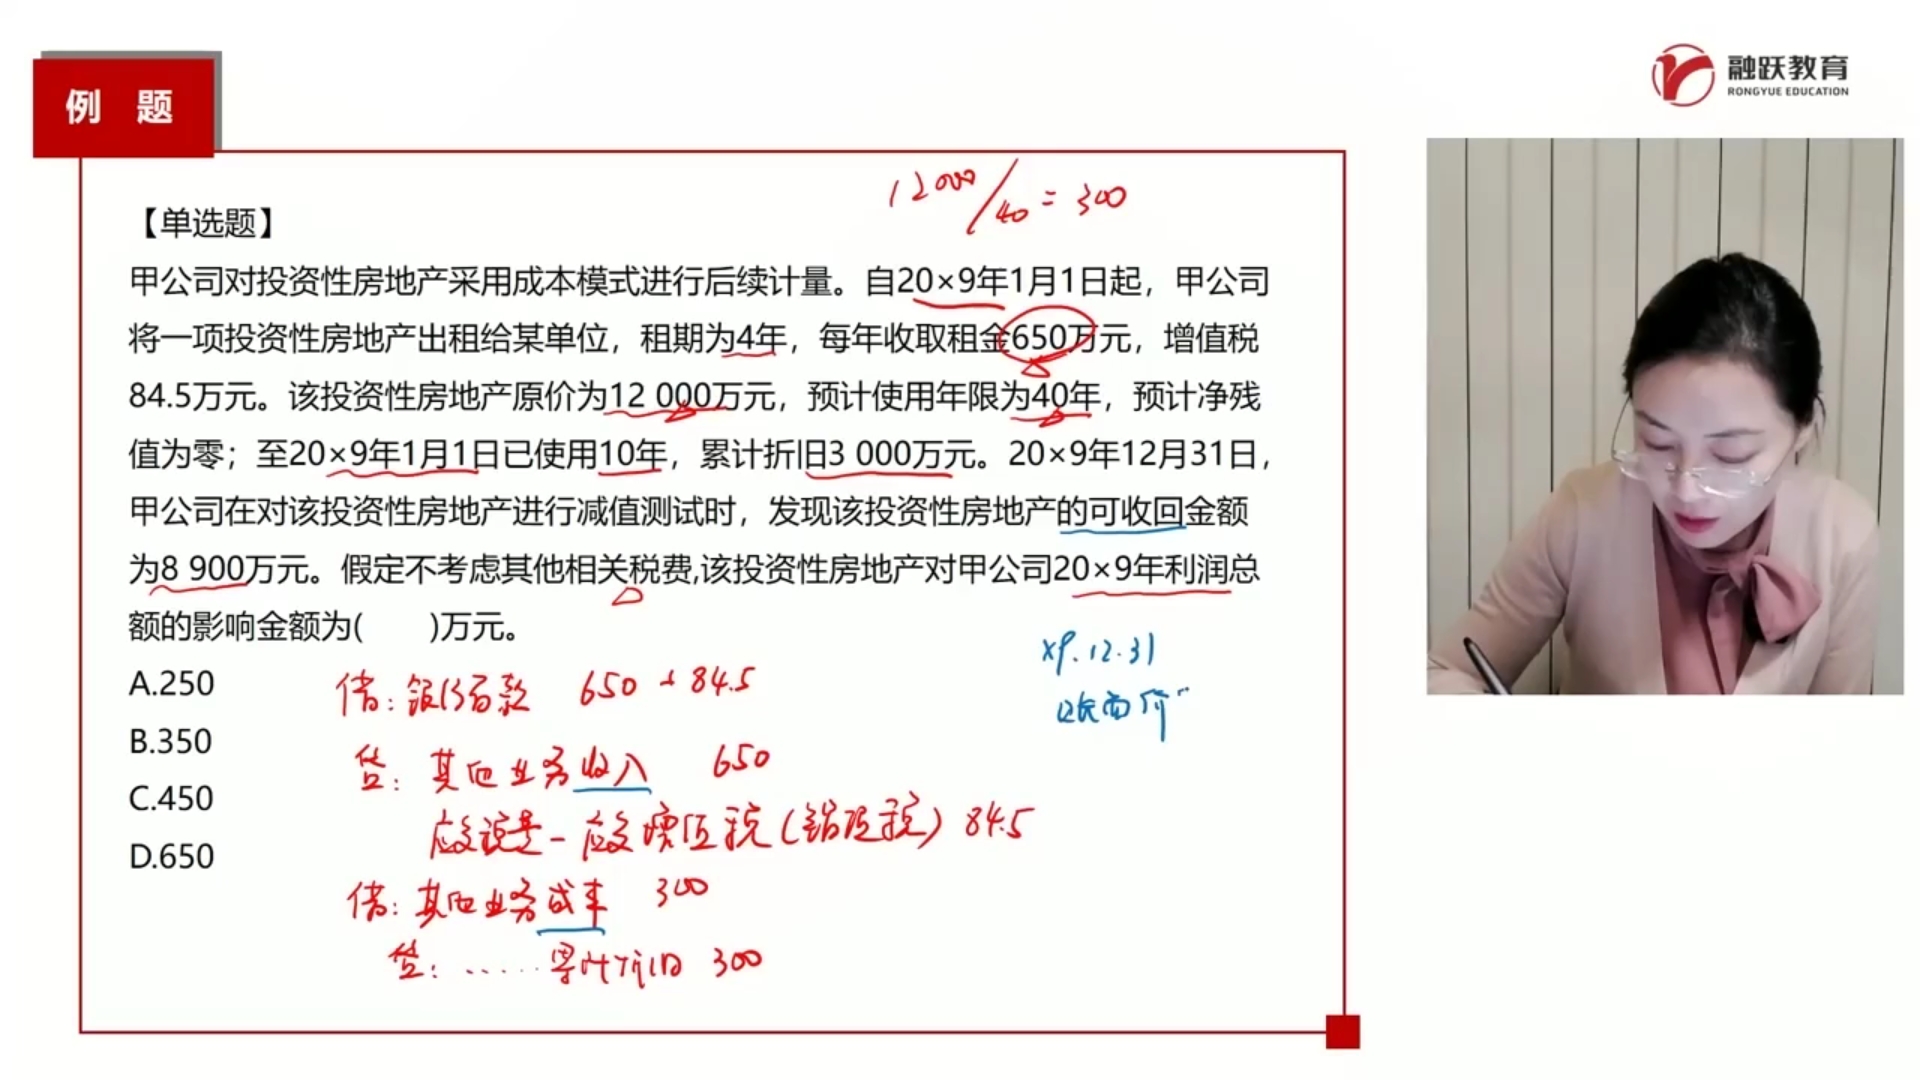 例 题
融跃教育
RONGYUE EDUCATION
12000/40=300
【单选题】
甲公司对投资性房地产采用成本模式进行后续计量。自20×9年1月1日起，甲公司
将一项投资性房地产出租给某单位，租期为4年，每年收取租金650万元，增值税
84.5万元。该投资性房地产原价为12 000万元，预计使用年限为40年，预计净残
值为零；至20×9年1月1日已使用10年，累计折旧3 000万元。20×9年12月31日，
甲公司在对该投资性房地产进行减值测试时，发现该投资性房地产的可收回金额
为8 900万元。假定不考虑其他相关税费,该投资性房地产对甲公司20×9年利润总
额的影响金额为( )万元。
A.250
B.350
C.450
D.650
×9.12.31
账面价
借：银行存款 650+84.5
贷：其他业务收入 650
应交税费－应交增值税（销项税）84.5
借：其他业务成本 300
贷：……累计折旧 300